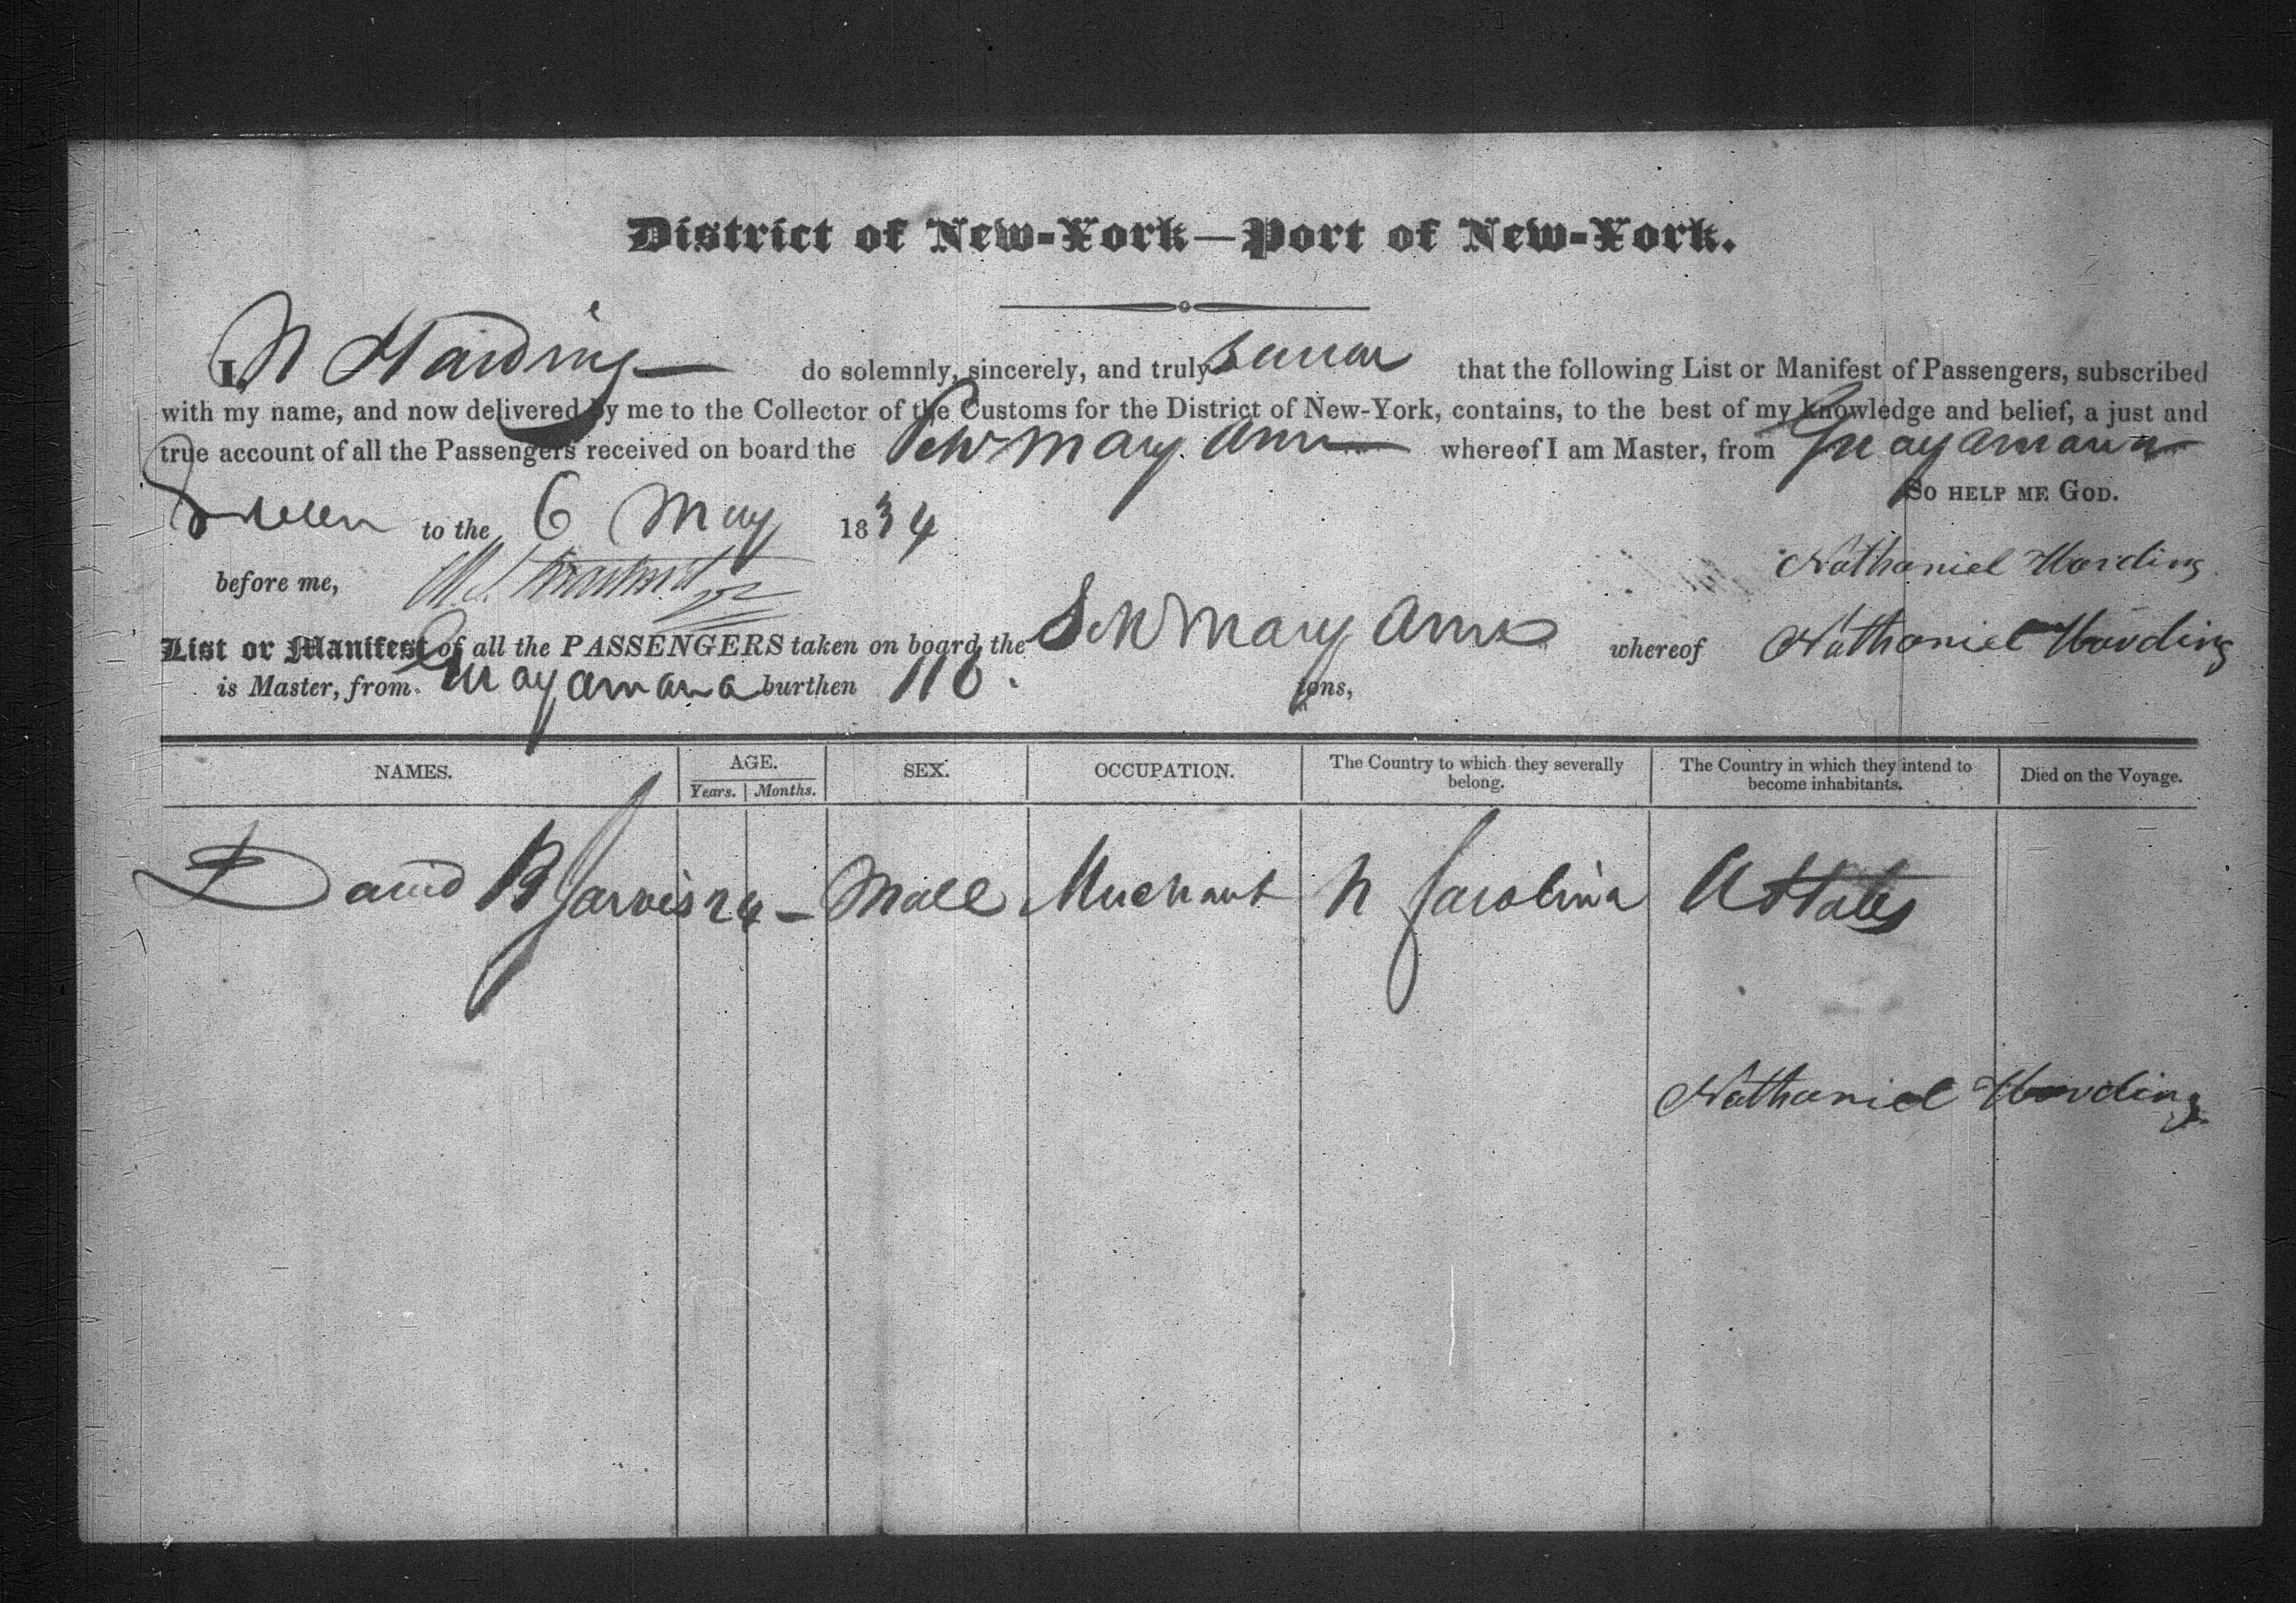 District of New-York—Port of New-York.
I, N Harding do solemnly, sincerely, and truly swear that the following List or Manifest of Passengers, subscribed
with my name, and now delivered by me to the Collector of the Customs for the District of New-York, contains, to the best of my knowledge and belief, a just and
true account of all the Passengers received on board the Schr Mary Ann whereof I am Master, from Guayamana
So help me God.
Sworn to the 6 May 1834
Nathaniel Harding
before me,
List or Manifest of all the PASSENGERS taken on board the Schr Mary Ann whereof Nathaniel Harding
is Master, from Guayamana burthen 110 tons,
NAMES. AGE. Years. Months. SEX. OCCUPATION. The Country to which they severally belong. The Country in which they intend to become inhabitants. Died on the Voyage.
David B Jarvis 24 — Male Merchant N Carolina U States
Nathaniel Harding